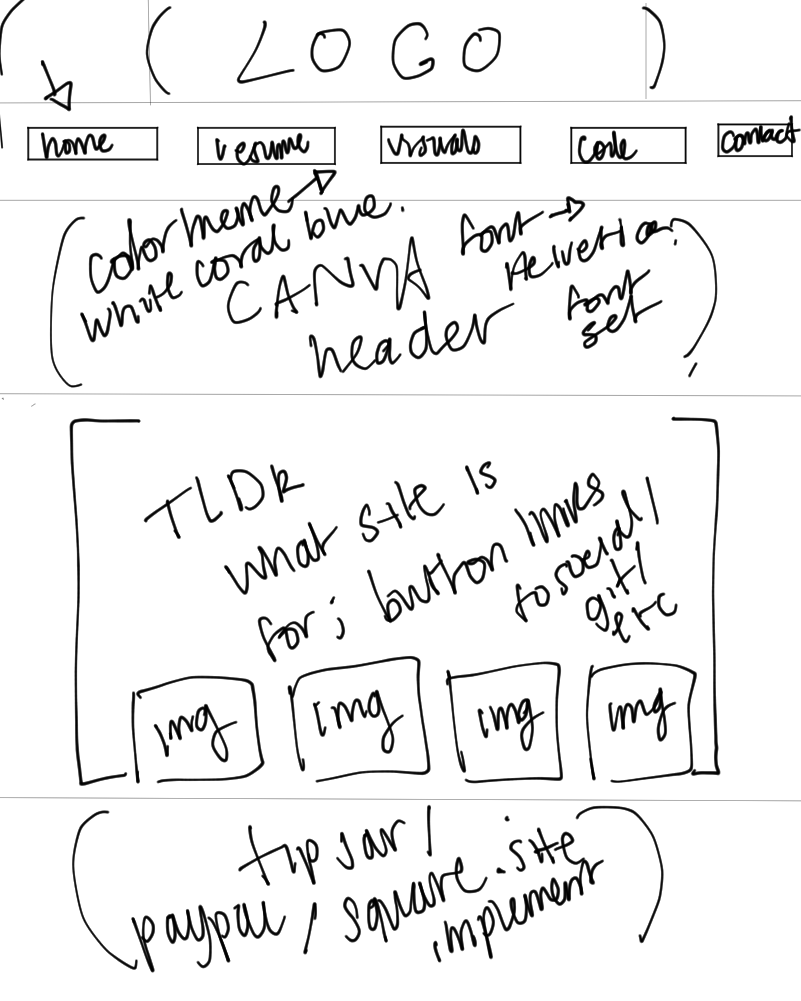 ( LOGO )
home resume visuals code contact
color theme →
white coral blue.
font →
Helvetica?
font
set
CANVA
header
TLDR
what site is
for; button links
to social/
git/
etc
img img img img
tip jar /
paypal / square.site
implement